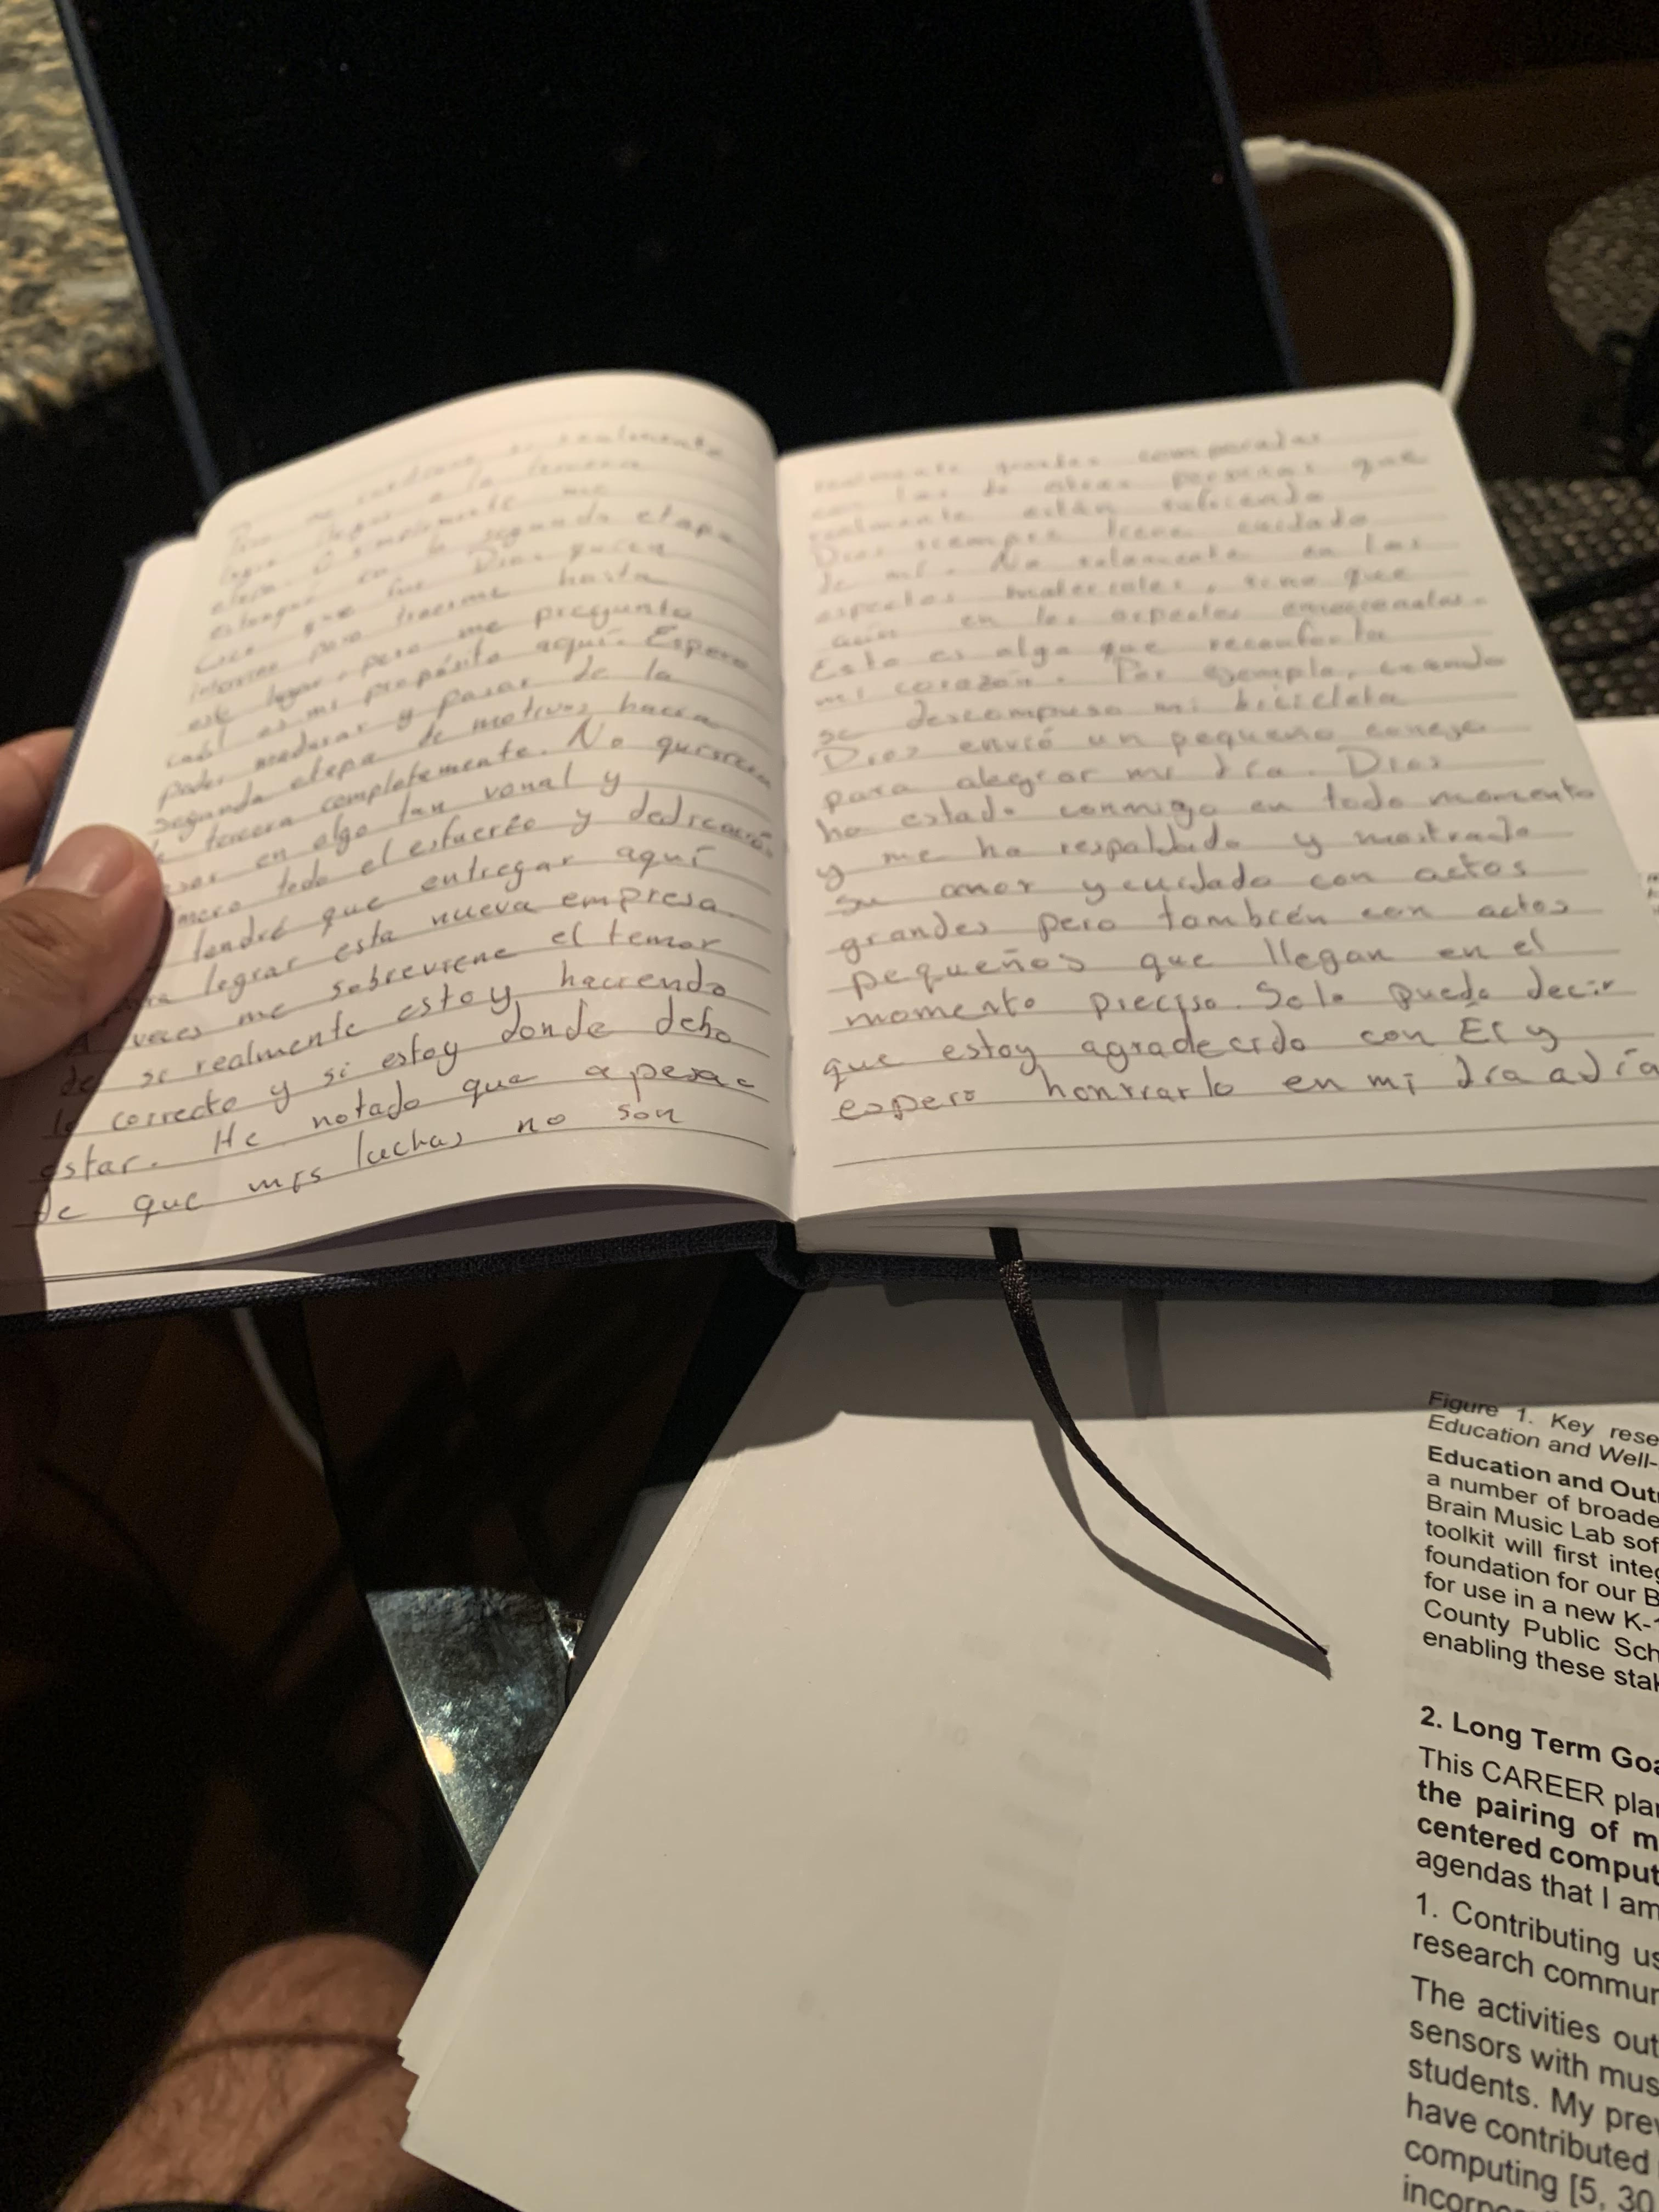 realmente
logré llegar a la tercera
etapa. O simplemente me
estanqué en la segunda etapa
Creo que fue Dios quien
intervino para traerme hasta
este lugar, pero me pregunto
cuál es mi propósito aquí. Espero
poder madurar y pasar de la
segunda etapa de motivos hacia
la tercera completamente. No quisiera
en algo tan vanal y
todo el esfuerzo y dedicación
tendré que entregar aquí
para lograr esta nueva empresa.
A veces me sobreviene el temor
de si realmente estoy haciendo
lo correcto y si estoy donde debo
estar. He notado que a pesar
de que mis luchas no son
realmente grandes comparadas
con las de otras personas que
realmente están sufriendo
Dios siempre tiene cuidado
de mí. No solamente en los
aspectos materiales, sino que
aún en los aspectos emocionales.
Esto es algo que reconforta
mi corazón. Por ejemplo, cuando
se descompuso mi bicicleta
Dios envió un pequeño conejo
para alegrar mi día. Dios
ha estado conmigo en todo momento
y me ha respaldado y mostrado
su amor y cuidado con actos
grandes pero también con actos
pequeños que llegan en el
momento preciso. Solo puedo decir
que estoy agradecido con El y
espero honrrarlo en mi día a día
Figure 1. Key rese
Education and Well-
Education and Outr
a number of broade
Brain Music Lab sof
toolkit will first integ
foundation for our B
for use in a new K-1
County Public Sch
enabling these stak
2. Long Term Goa
This CAREER plan
the pairing of m
centered comput
agendas that I am
1. Contributing us
research commun
The activities out
sensors with mus
students. My prev
have contributed
computing [5, 30
incorpo